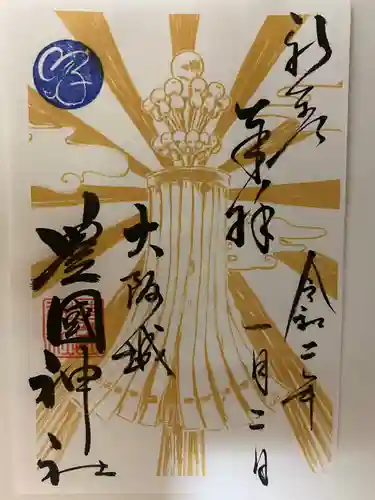 令和二年
奉拝
一月二日
大阪城
豊國神社